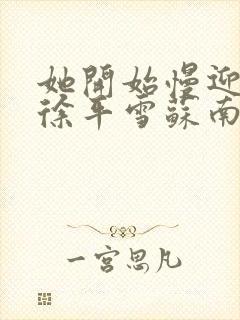 她開始慢迎
徐平雪蘇南
一宮思凡